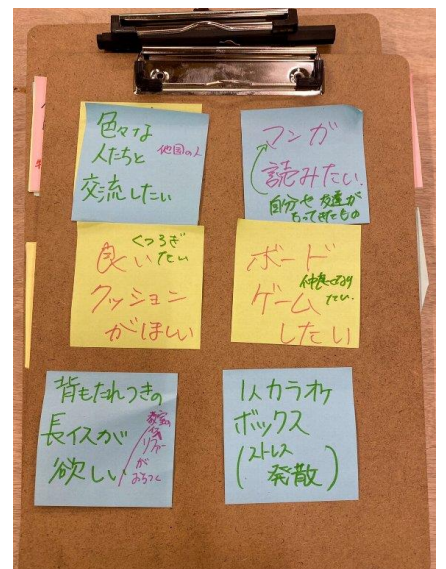 色々な
人たちと 他国の人
交流したい
マンガ
読みたい.
自分や友達が
もってきたもの
くつろぎ
良い たい
クッション
がほしい
ボード
仲良くなり
ゲーム たい.
したい
背もたれつきの
長イスが
欲しい
1人カラオケ
ボックス
(ストレス
発散)